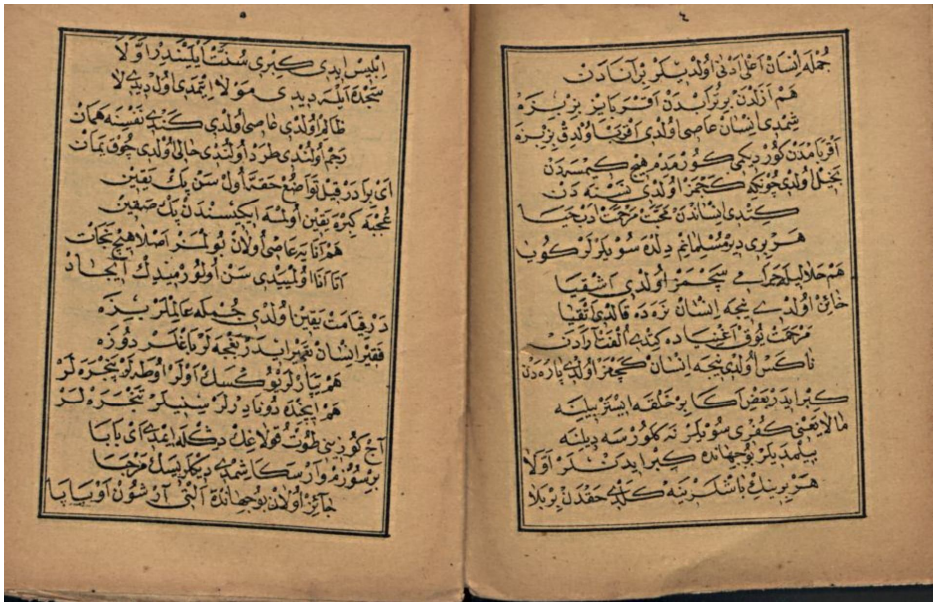 ٤
جُمْلَه اِنْسَانْ اَعْلٰى اَدْنٰى اُولْدِيلَرْ بِرْ آنَادَنْ
هَمْ اَزَلْدَنْ بِرْ تُرَابْدَنْ اَقْرَبَايِزْ بِزْ بِزَه
شِمْدِى اِنْسَانْ عَاصِى اُولْدِى اَقْرَبَا اُولْدِقْ بِزَه
اَقْرَبَامْدَنْ كُورْدِيكِمِى كُورْمَدِمْ هِيچْ كِمْسَه دَنْ
بَخِلْ اُولْدِى چُونْكِه كَچْمَزْ اُولْدِى نَسْنَه دَنْ
كِنْدِى اِنْسَانْدَنْ مَحَبَّتْ مَرْحَمَتْ دَبْ حَيَا
هَرْ بِرِى دِيرْ مُسْلِمَانِمْ دِلْدَه سُويْلَرْلَرْ
هَمْ حَلَالِيلَه حَرَامِى سَچْمَزْ اُولْدِى اَشْقِيَا
خَائِنْ اُولْدِى نِيجَه اِنْسَانْ نَرَدَه قَالْدِى اَتْقِيَا
مَرْحَمَتْ يُوقْ اَغْنِيَادَه كِتْدِى اُلْفَتْ آرَادَنْ
نَاكَسْ اُولْدِى نِيجَه اِنْسَانْ كَچْمَزْ اُولْدِى پَارَه دَنْ
كِبْرْ اِيدَرْ بَعْضِ آكَا بِرْ خَلْقَه اِيسْتَرْ بِيلِينَه
مَالَا يَعْنِى كُفْرِى سُويْلَرْ نَه كَلُورْسَه دِيلِينَه
بِيلْمَدِيلَرْ بُو جِهَانْدَه كِبْرْ اِيدَنْلَرْ اَوَّلَا
هَرْ بِرِينِكْ بَاشْلَرِينَه كَلْدِى حَقْدَنْ بِرْ بَلَا
٥
اِبْلِيسْ اِيدِى كِبْرِى سُنَّتْ اَيْلَيَنْدِرْ اَوَّلَا
سَجْدَه اَيْلَه دِيدِى مَوْلَا اِيتْمَدِى اُولْ دِيدِى لَا
ظَالِمْ اُولْدِى عَاصِى اُولْدِى كَنْدِى نَفْسِنَه هَمَانْ
رَجْمْ اُولُنْدِى طَرْدْ اُولُنْدِى حَالِى اُولْدِى چُوقْ يَمَانْ
اَىْ بِرَادَرْ قِيلْ تَوَاضُعْ حَقَّه اُولْ سَنْ پَكْ يَقِينْ
عُجْبَه كِبْرَه يَقِينْ اُولْمَه اِيكِيسِنْدَنْ پَكْ صَقِينْ
هَمْ آنَايَه عَاصِى اُولَانْ بُولْمَزْ اَصْلَا هِيچْ نَجَاتْ
اَتَا اَنَا اُولْمَيَيْدِى سَنْ اُولُورْمِيدِكْ اِيجَادْ
دَرْ قِيَامَتْ يَقِينًا اُولْدِى جُمْلَه عَالِمْلَرْ بِزَه
فَقِيرْ اِنْسَانْ
هَمْ يَپَارْلَرْ يُوكْسَكْ اَوْلَرْ اُوطَه لَرْ پَنْجَرَه لَرْ
هَمْ اِيچِنْدَه دُونَادِرْلَرْ سِينِيلَرْ تَنْجَرَه لَرْ
آچْ كُوزِينِى طُوتْ قُولَاغِكْ دِكْلَه اِمْدِى اَىْ بَابَا
بِرْ سُوزُمْ وَارْ سَكَا شِمْدِى دِكْلَرِيسَكْ مَرْحَبَا
جَائِزْ اُولَانْ بُو جِهَانْدَه اَلْتِى آرْشُونْ